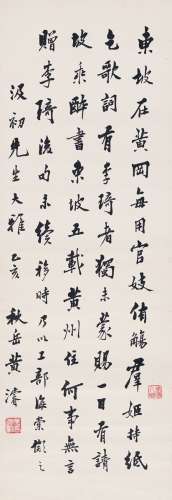 東坡在黃岡每用官妓侑觴羣姬持紙
乞歌詞有李琦者獨未蒙賜一日有請
坡乘醉書東坡五載黃州住何事無言
贈李琦後句未續移時乃以工部海棠儗之
汲初先生大雅 乙亥 秋岳黃濬